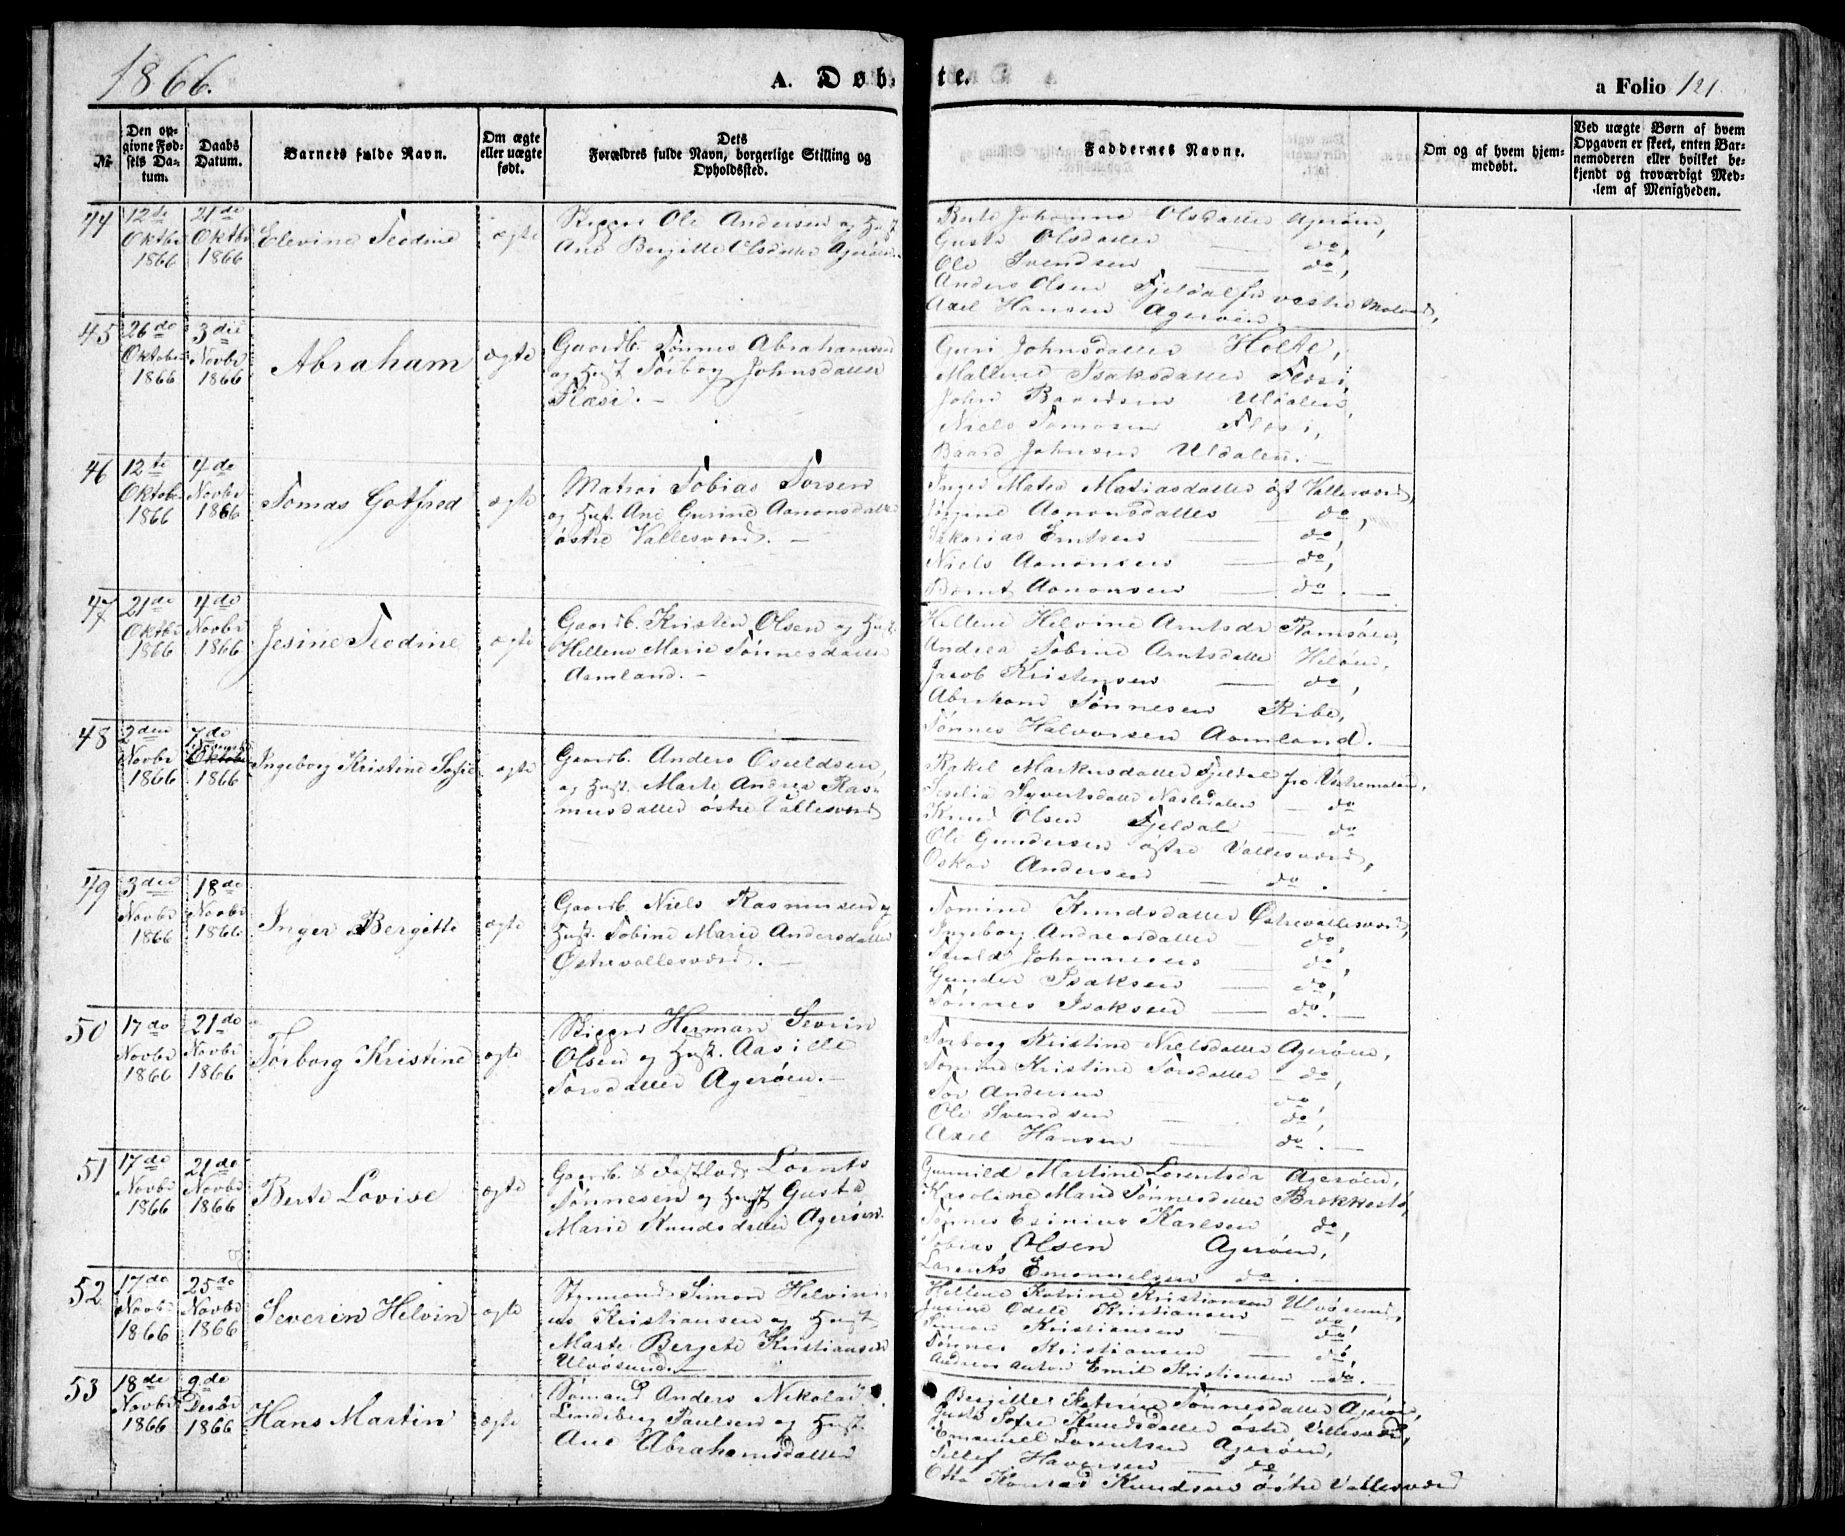 1866.
A. Døbte.
a Folio 121
№
Den opgivne Fødsels Datum.
Daabs Datum.
Barnets fulde Navn.
Om ægte eller uægte født.
Dets Forældres fulde Navn, borgerlige Stilling og Opholdssted.
Faddernes Navne.
Om og af hvem hjemmedøbt.
Ved uægte Børn af hvem Opgaven er skeet, enten Barnemoderen eller hvilket bekjendt og troværdigt Medlem af Menigheden.
44
12te Oktbr 1866
21de Oktbr 1866
Elevine Teodine
ægte
Skipper Ole Andersen og Hust
Ane Bergitte Olsdatter Agerøen.
Berte Johanna Olsdatter Agerøen,
Gusta Olsdatter — do,
Ole Svendsen — do,
Anders Olsen Fjeldal fra vestre Moland
Axel Hansen Agerøen,
45
26de Oktobr 1866
3die Novbr 1866
Abraham
ægte
Gaardb. Tønnes Abrahamsen
og Hust Torbog Johnsdatter
Flæsi. —
Guri Johnsdatter Holte,
Mallene Isaksdatter Flæsi,
John Baardsen Uldalen,
Niels Tomasen Flæsi,
Baard Johnsen Uldalen. —
46
12te Oktobr 1866
4de Novbr 1866
Tomas Gotfred
ægte
Matros Tobias Torsen
og Hust. Ane Gurine Aanonsdatter
østre Vallesværd. —
Inger Matea Matiasdatter øst Vallesværd,
Aanonsdatter — do,
Sakarias Erntsen — do,
Niels Aanonsen — do,
Bernt Aanonsen — do. —
47
21de Oktbr 1866
4de Novbr 1866
Jesine Teodine
ægte
Gaardb. Kristen Olsen og Hust
Hellene Marie Tønnesdatter
Aamland. —
Hellene Helvine Arntsdr Ramsøen,
Andrea Tobine Arntsdatter Heløen,
Jacob Kristensen — do,
Abraham Tønnesen Ribe,
Tønnes Halvorsen Aamland. —
48
2den Novbr 1866
7de Novembr Oktobr 1866
Ingeborg Kristine Sofie
ægte
Gaardb. Anders Osuldsen,
og Hust. Marte Andrea Ras-
musdatter østre Vallesværd
Rakel Markusdatter Fjeldal fra Vestremoland,
Syvertsdatter Naslédalen — do
Knud Olsen Fjeldal — do
Ole Gundersen østre Vallesværd,
Oskar Andersen — do.
49
3die Novbr 1866
18de Novbr 1866
Inger Bergitte
ægte
Gaardb. Niels Rasmusen og
Hust. Tobine Marie Andersdatter
Østrevallesværd. —
Tomine Knudsdatter Østrevallesværd,
Ingeborg Andreasdatter — do,
Johannesen — do,
Gunder Isaksen — do,
Tønnes Isaksen — do. —
50
17de Novbr 1866
21de Novbr 1866
Torborg Kristine
ægte
Skipper Herman Severin
Olsen og Hust. Aasille
Torsdatter Agerøen. —
Torborg Kristine Nielsdatter Agerøen,
Tomine Kristine Torsdatter — do,
Tor Andersen do,
Ole Svendsen — do,
Axel Hansen — do. —
51
17de Novbr 1866
21de Novbr 1866
Berte Lovise
ægte
Gaardb. & Fastlods Lorents
Tønnesen og Hust Gusta
Marie Knudsdatter Agerøen.
Gunnild Martine Lorentsdr Agerøen,
Karoline Marie Tønnesdatter Brekkestø,
Tønnes Esinius Karlsen do,
Tobias Olsen Agerøen,
Lorents Emanuelsen do. —
52
17de Novbr 1866
25de Novbr 1866
Severin Helvin
ægte
Styrmand Simon Helvini-
us Kristiansen og Hust
Marte Bergete Kristiansen
Ulvøsund. —
Hellene Katrine Kristiansen Ulvøsund,
Jusine Odele Kristiansen — do,
Simon Kristiansen — do,
Tønnes Kristiansen — do,
Andreas Anton Emil Kristiansen — do. —
53
18de Novbr 1866
9de Decbr 1866
Hans Martin
ægte
Sømand Anders Nikolai
Lindeberg Paulsen og Hust
Ane Abrahamsdatter
Bergitte Katrine Tønnesdatter Agerøen,
Gusta Sofie Knudsdatter østre Vallesværd,
Emanuel Lorentsen Agerøen,
Tellef Haversen — do
Otto Konrad Knudsen østre Vallesværd